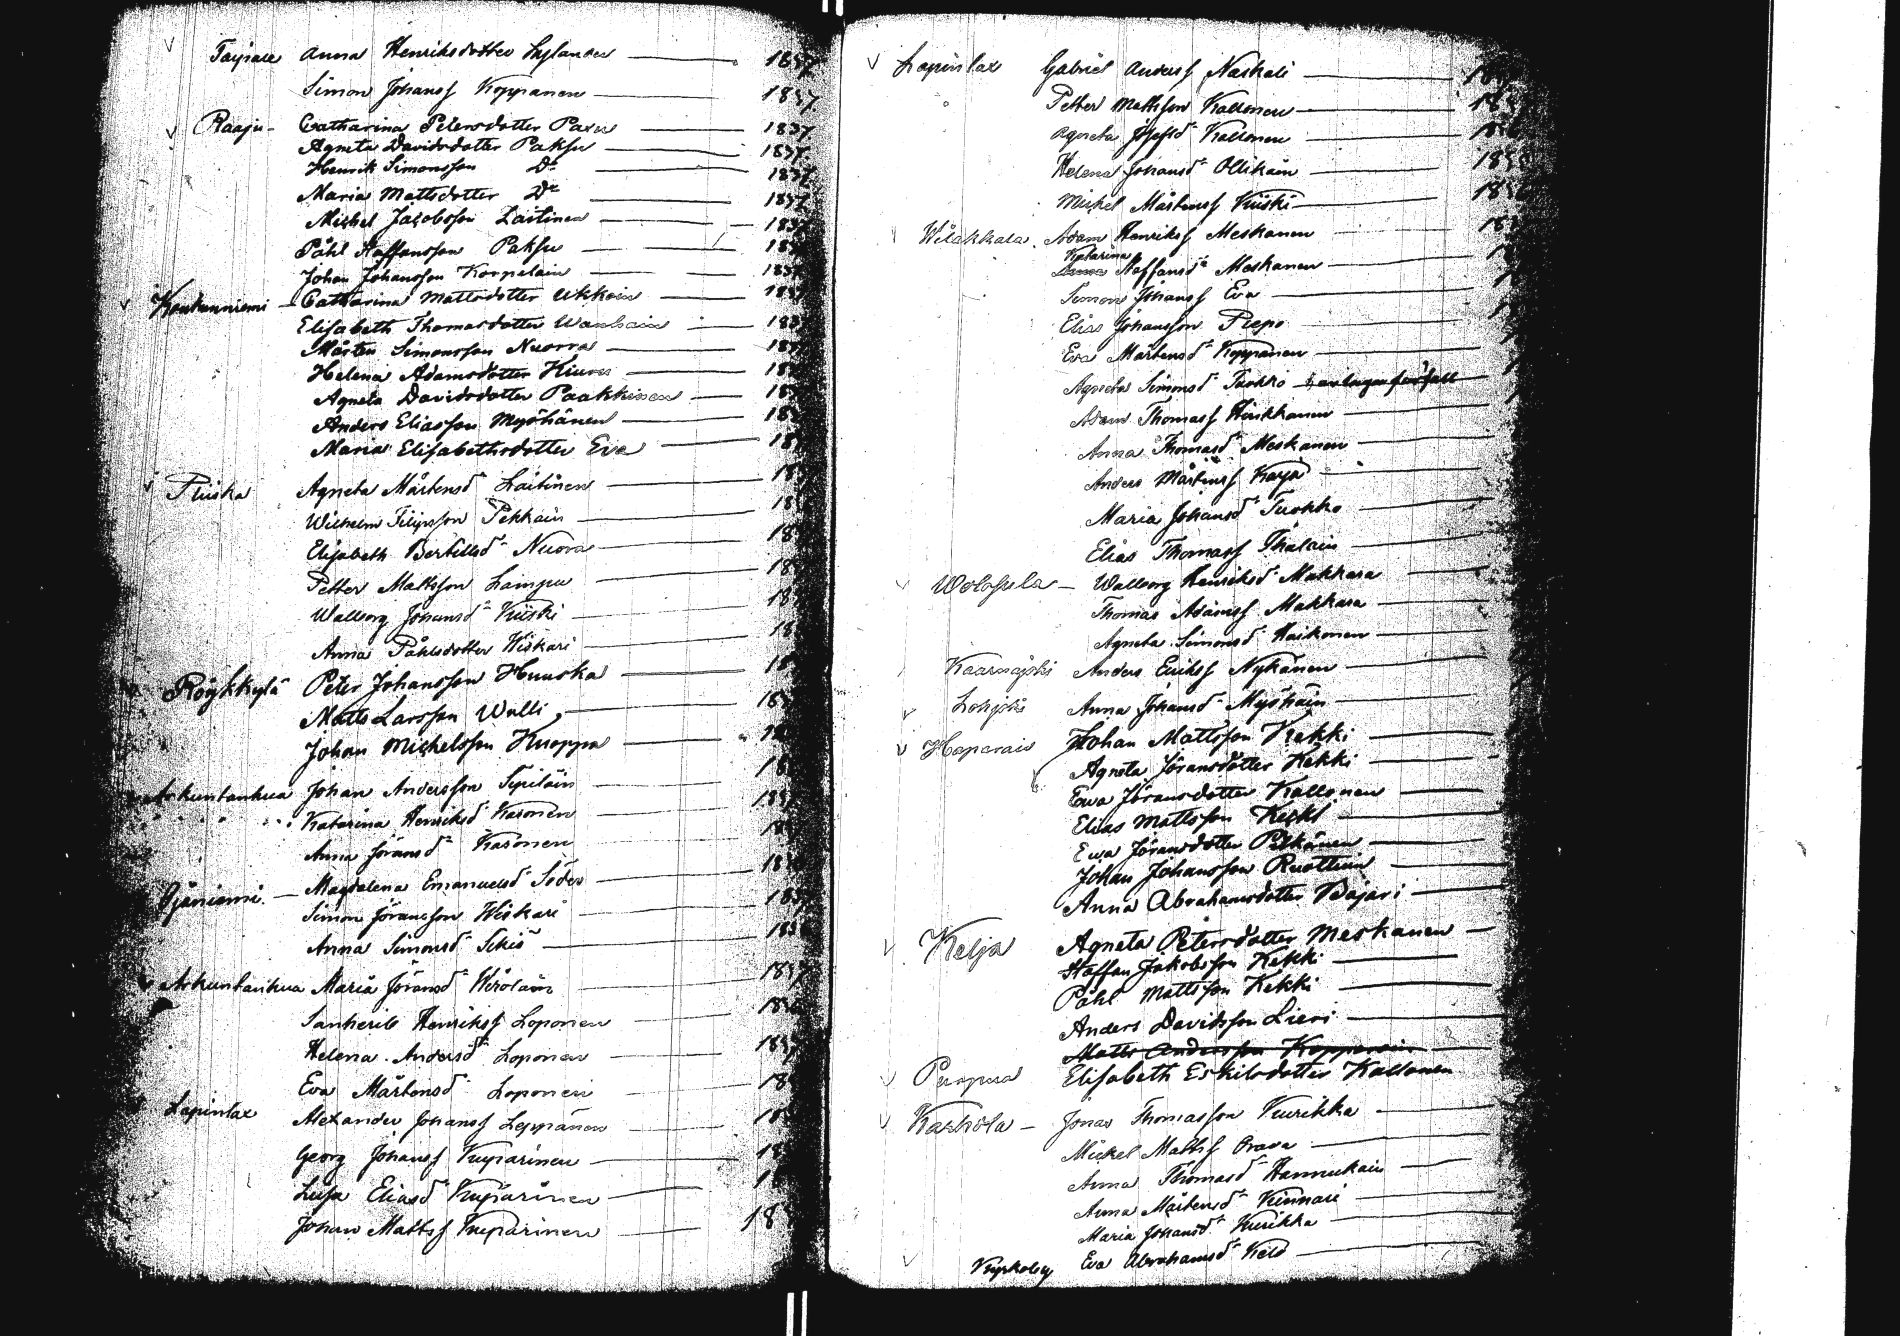 Taipale Anna Henriksdotter Nylander 1837
Simon Johansf Koppanen 1837
Raaju- Catharina Petersdotter Paxu 1837
Agneta Davidsdotter Paksu 1837
Henrik Simonsson Do 1837
Maria Mattsdotter Do 1837
Michel Jacobsson Laitinen 1837
Påhl Staffansson Paksu 183
Johan Johansson Korpelain 1837
Koukunniemi Catharina Mattsdotter Ukkoin 1837
Elisabeth Thomasdotter Wanhain 183
Mårten Simonsson Nuorva 183
Helena Adamsdotter Kiuru 18
Agneta Davidsdotter Paakkinen 183
Anders Eliasson Myöhänen 183
Maria Elisabethsdotter Eva 18
Pliiska Agneta Mårtensd Laitinen 18
Wilhelm Filipsson Pekkain 18
Elisabeth Bertilsd Nuora 18
Petter Mattsson Laimpu 18
Walborg Johansd Kiiski 18
Anna Påhlsdotter Wiskari 18
Röykkylä Peter Johansson Huuska 18
Matts Larsson Walli 183
Johan Michelsson Kuoppa 18
Arkuntanhua Johan Andersson Sipiläin 18
Katarina Henriksd Karonen 183
Anna Jöransd Karonen 18
Ojaniemi Magdalena Emanuelsd Söder 18
Simon Jöransson Wiskari 183
Anna Simonsd Sikiö 183
Arkuntanhua Maria Jöransd Wirolain 1837
Sanherib Henriksf Loponen 183
Helena Andersd Loponen 1837
Eva Mårtensd Loponen 18
Lapinlax Alexander Johansf Leppänen 18
Georg Johansf Kuparinen 18
Lisa Eliasd Kuparinen 18
Johan Mattsf Kuparinen 18
Lapinlax Gabriel Andersf Naskali 18
Petter Mattsson Kallonen 183
Agneta Josefsd Kallonen 183
Helena Johansd Ollikain 183
Michel Mårtensf Kiiski 183
Wilakkala Adam Henriksf Meskanen 18
Katarina
Staffansd Meskanen
Simon Johansf Eva
Elias Johansson Piepo
Eva Mårtensd Koppanen
Agneta Simonsd Tuokko
Adam Thomasf Hinkkanen
Anna Thomasd Meskanen
Anders Mårtensf Karja
Maria Johansd Tuokko
Elias Thomasf Thalain
Wolosula Walborg Henriksd Makkara
Thomas Adamsf Makkara
Agneta Simonsd Haikonen
Kaarnajoki Anders Eriksf Nykänen
Lohjoki Anna Johansd Myöhäin
Haparais Johan Mattsson Kekki
Agneta Jöransdotter Kekki
Ewa Jöransdotter Kallonen
Elias Mattsson Kekki
Ewa Jöransdotter Pelkänen
Johan Johansson Ruottinen
Anna Abrahamsdotter Bajari
Kelja Agneta Petersdotter Meskanen
Staffan Jakobsson Kekki
Påhl Mattsson Kekki
Anders Davidsson Lieri
Matts Andersson Kopperoin
Purpua Elisabeth Eskilsdotter Kallonen
Karkola Jonas Thomasson Kurikka
Mickel Mattsf Orava
Anna Thomasd Hannukain
Anna Mårtensd Kinnari
Maria Johansd Kurikka
Kyrkoby Eva Abrahamsd Kild